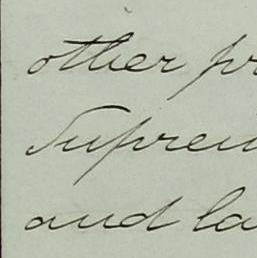 other pr
Suprem
and la